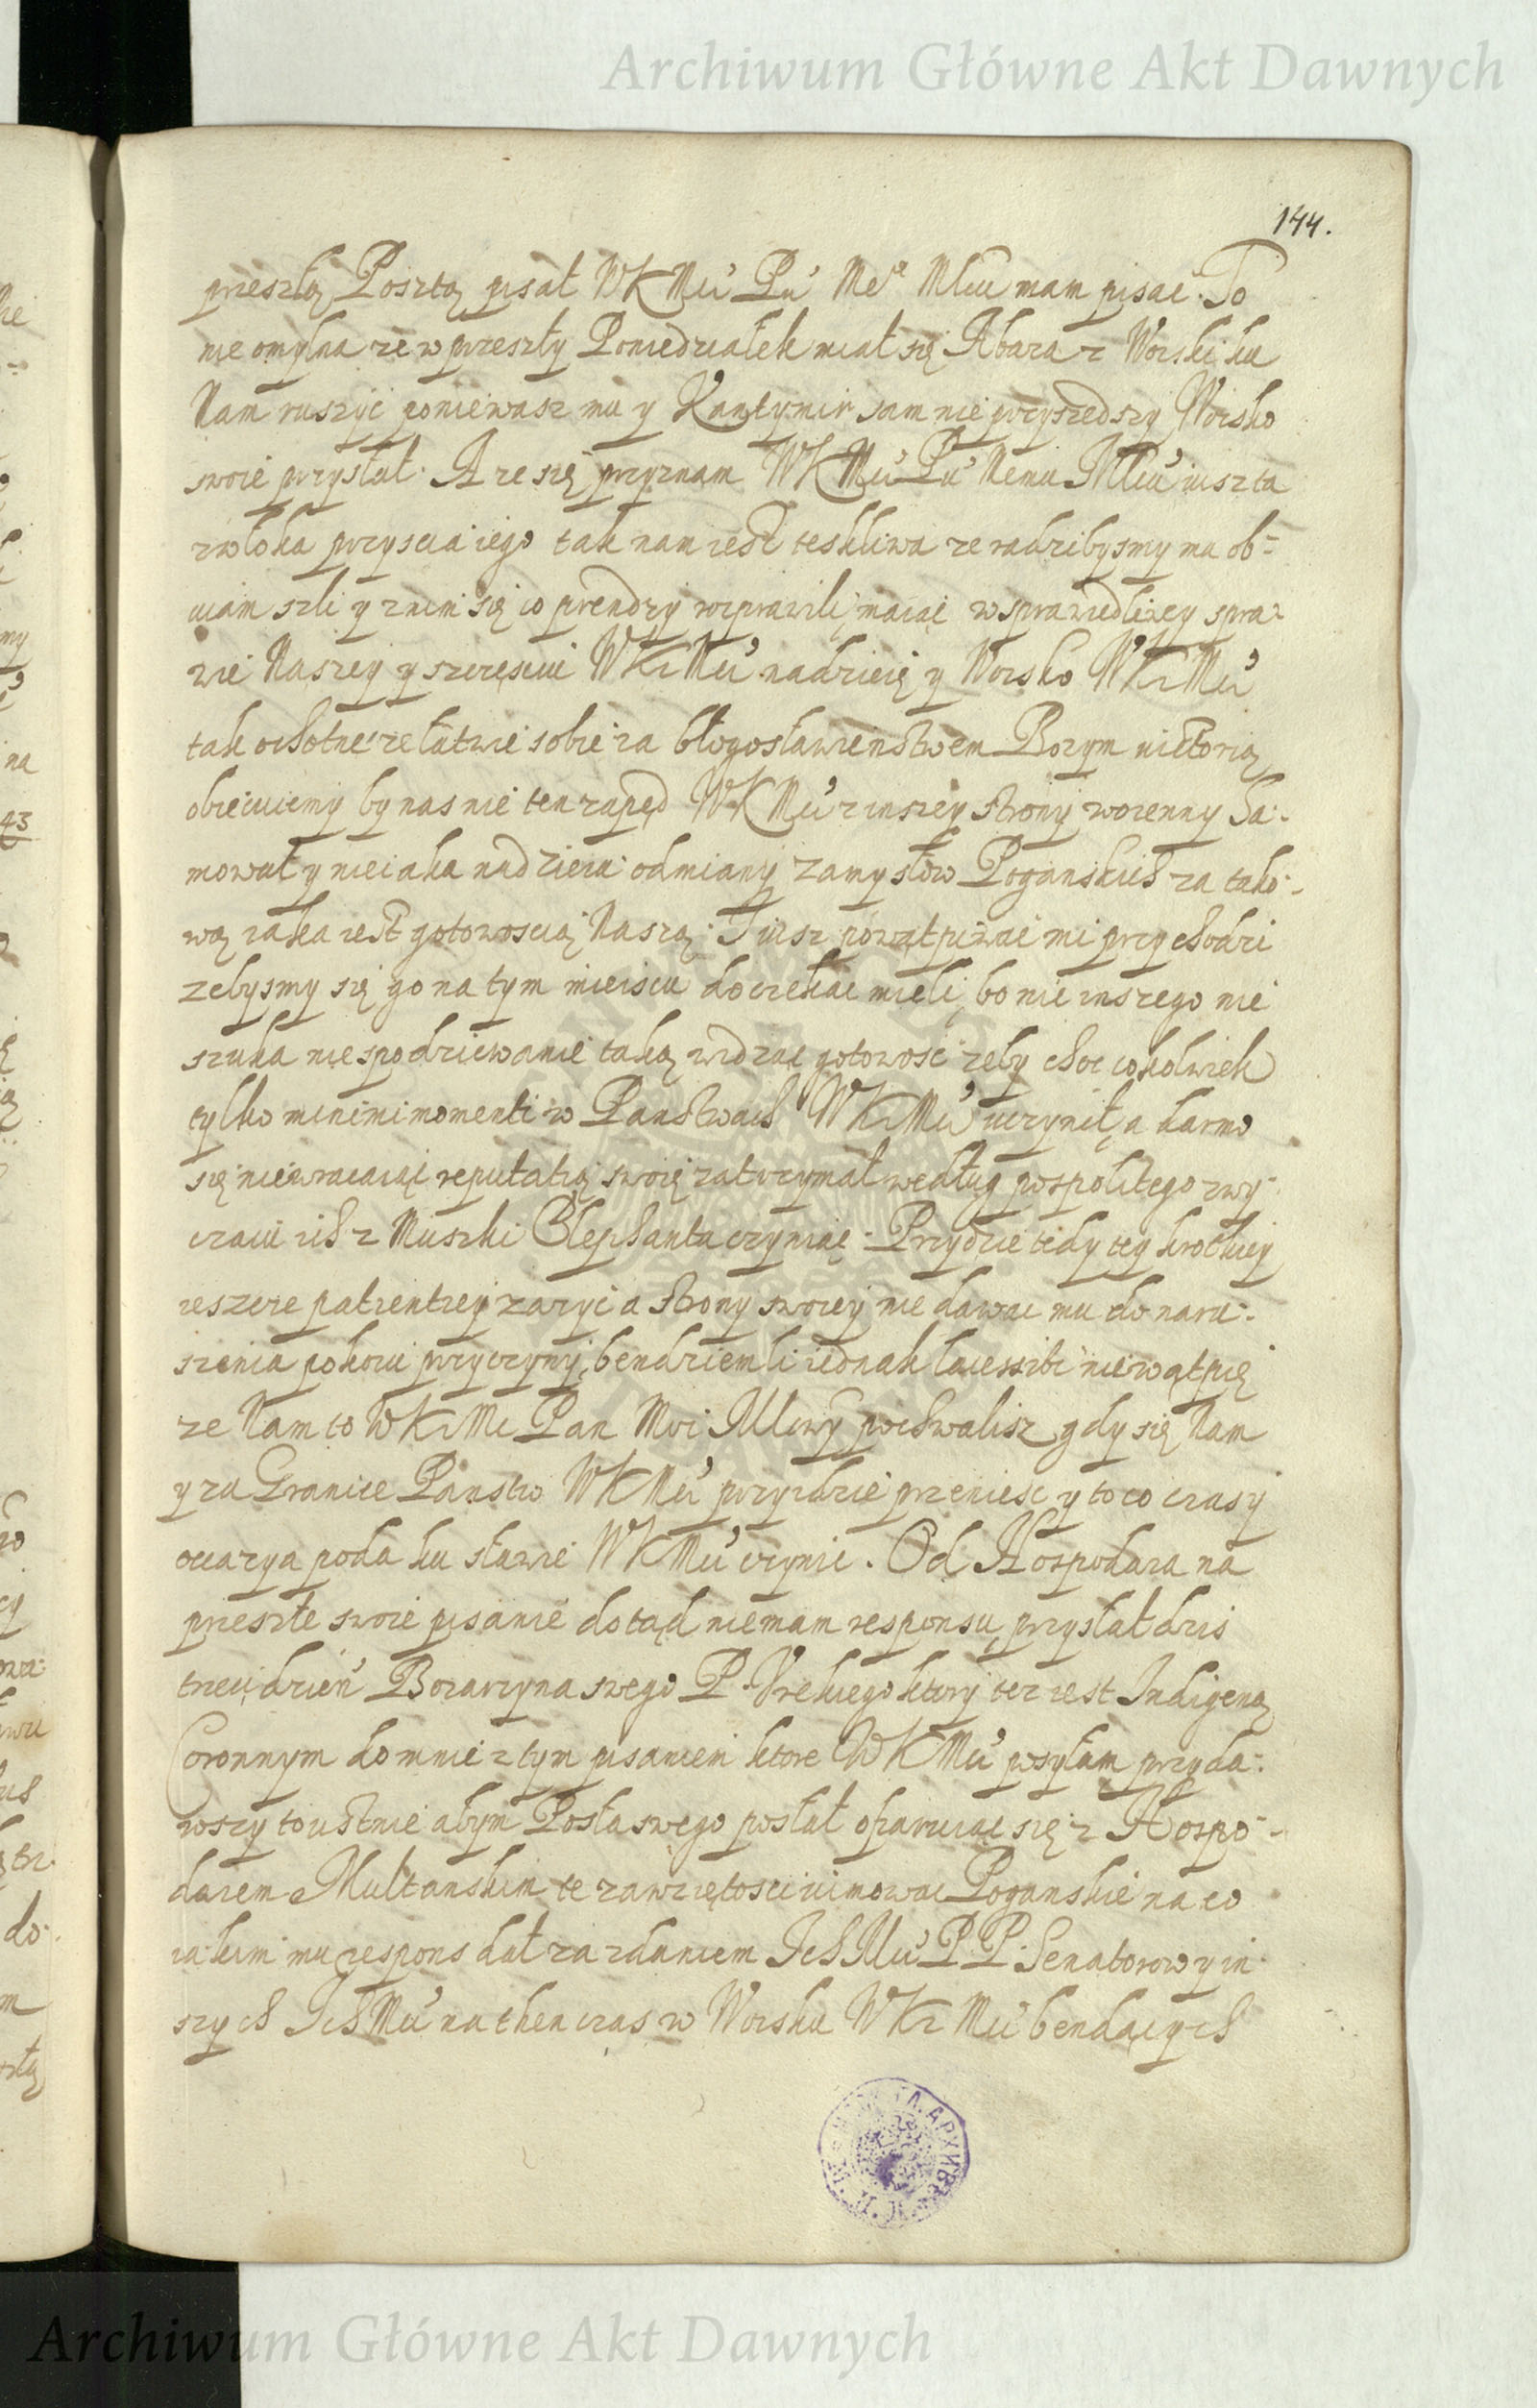 Archiwum Główne Akt Dawnych
144.
przeszłą Posztą pisał WKMci Pu Mem Mciu mam pisac. To
nie omylna ze w przeszły Poniedziałek miał się Abaza z Woiski ku
Nam ruszyć poniewasz mu y Kantymir sam nie przyszedszy Woisko
swoie przysłał. A ze się przyznam WKMci Pu Memu Mciu iusz ta
zwłoka przyscia iego tak nam iest teskliwa ze radzibysmy mu ob=
wiam szli y znim się co prendzy rozprawili, maiąc w sprawiedliwey spra=
wie Naszey y szczęsciu WKMci nadzieię y Woisko WKMci
tak ochotne ze łatwie sobie za błogosławienstwem Bozym victorią
obiecuiemy by nas nie ten zapęd WKMci z inszey strony woienny ha:
mował y nieiaka nadzieia odmiany zamysłów Poganskich za tako:
wą iaka iest gotowoscią Naszą. Iusz powątpiwac mi przychodzi
zebysmy się go na tym mieiscu doczekac mieli, bo nie inszego nie
szuka niespodziewanie taką widząc gotowosc zeby choc cokolwiek
tylko minimi momenti w Panstwach WKMci uczynił, a darmo
się niewracaiąc reputatią swoię zatrzymał według pospolitego zwy:
czaiu ich z Muszki Elephanta czyniąc. Przydzie tedy tey krotkiey
ieszcze patientiey zazyc a strony swoiey nie dawac mu do naru:
szenia pokoiu przyczyny, bendziemli iednak lacessiti niewątpię
ze Nam to WKMc Pan Moi Mciwy pochwalisz gdy się Nam
y za Granice Panstw WKMci przyidzie przeniesc y to co czasy
occazya poda ku sławie WKMci czynic. Od Hospodara na
przeszłe swoie pisanie dotąd niemam responsu, przysłał dzis
trzeci dzien Boiarzyna swego P. Urekiego ktory tez iest Indigeną
Coronnym do mnie z tym pisaniem ktore WKMci posyłam przyda:
wszy to ustnie abym Posła swego posłał ofiaruiąc się z Hospo=
darem Multanskim te zawziętosci uimowac Poganskie na co
iakim mu respons dał za zdaniem Ich Mci P.P. Senatorow y in
szych Ich Mci na then czas w Woisku WKMci bendących
Archiwum Główne Akt Dawnych